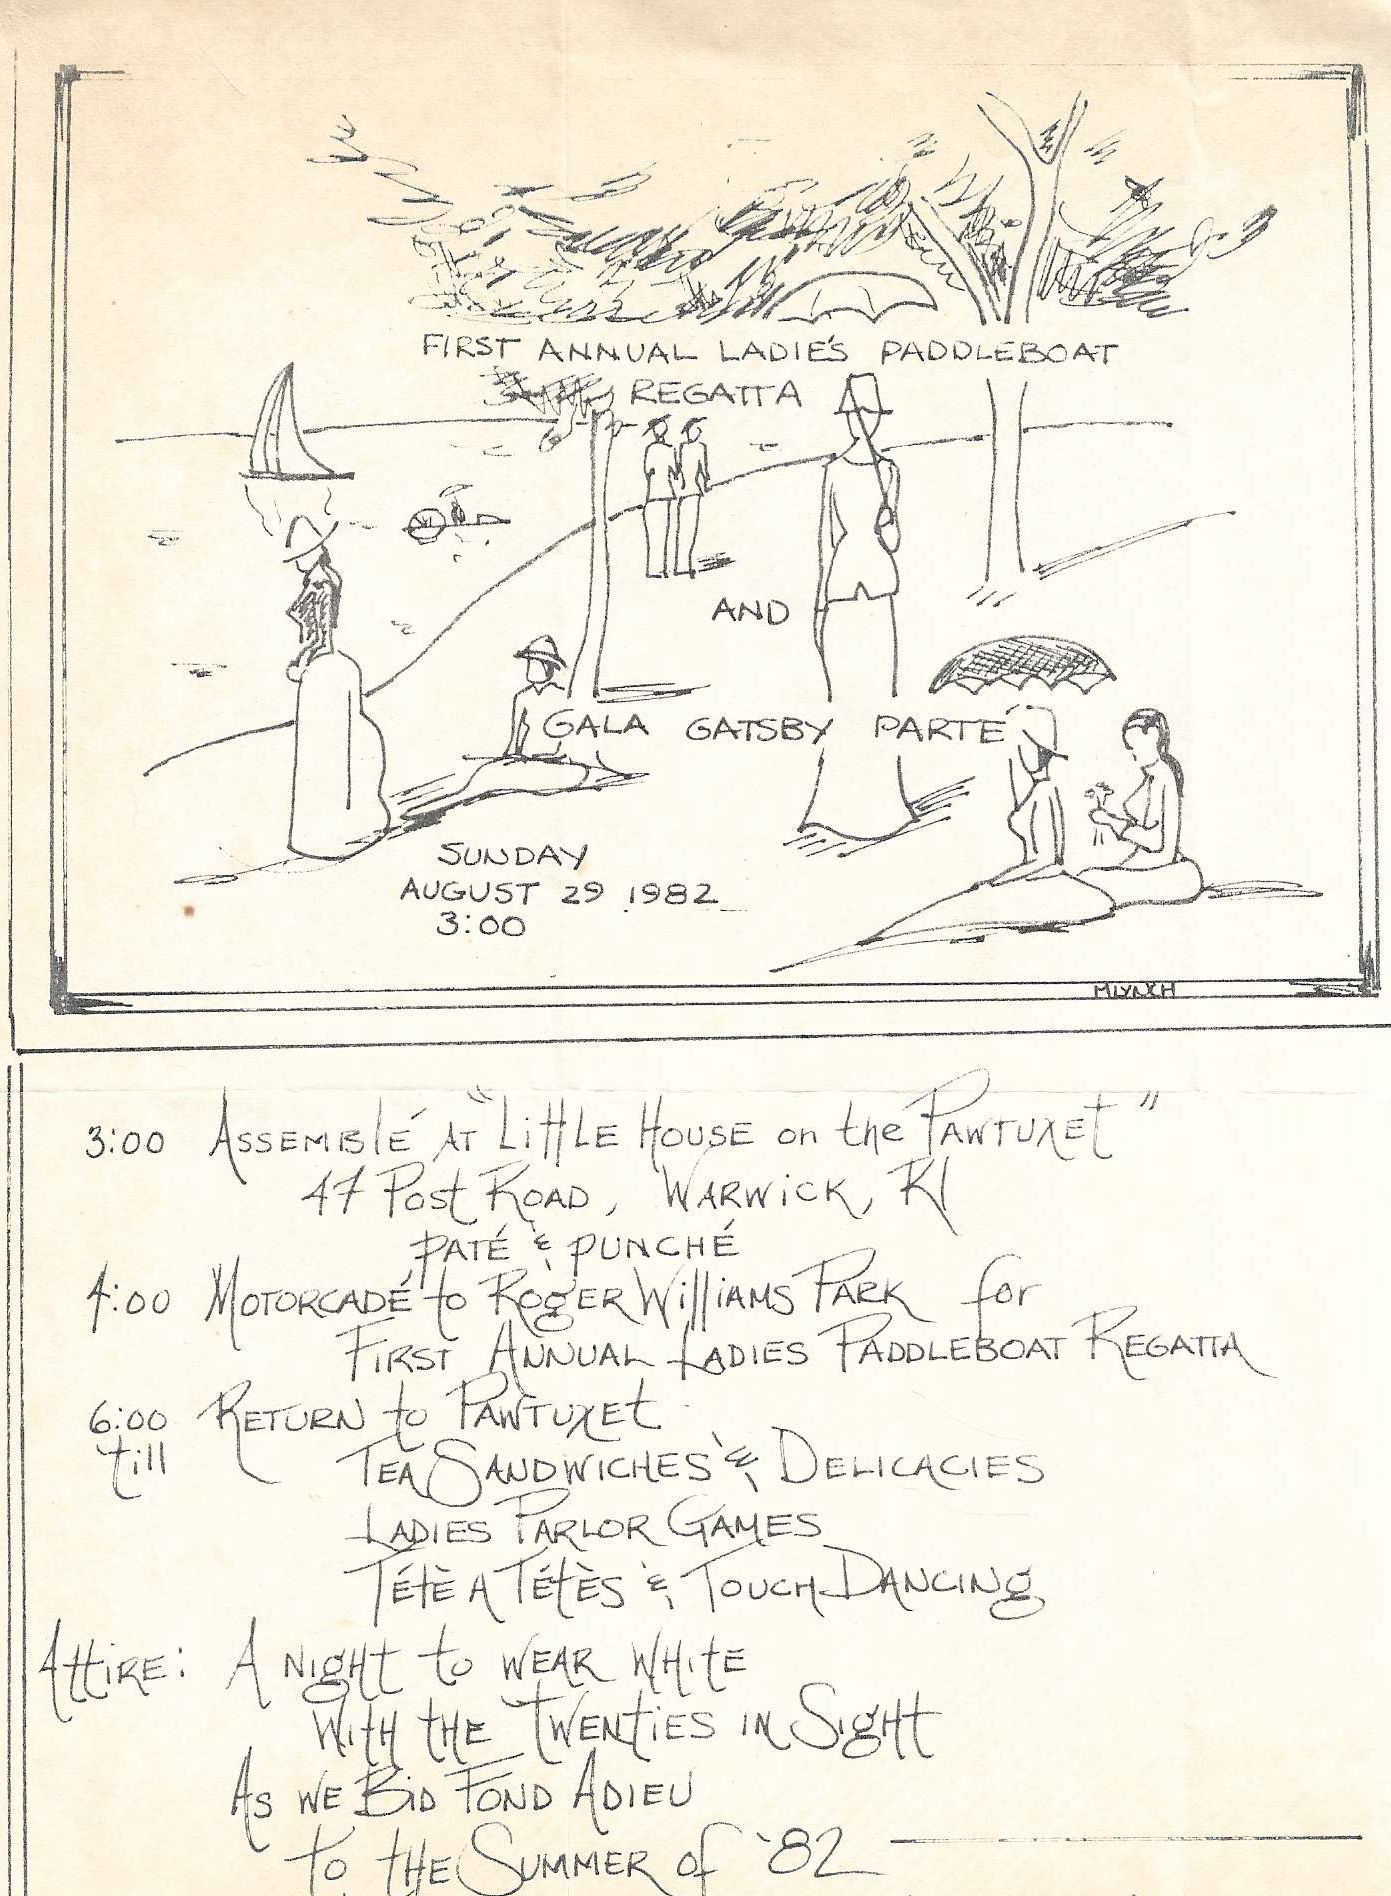 FIRST ANNUAL LADIE'S PADDLEBOAT
REGATTA
AND
GALA GATSBY PARTÉ
SUNDAY
AUGUST 29 1982
3:00
MLYNCH
3:00 ASSEMBLÉ AT "LITTLE HOUSE on the PAWTUXET"
47 POST ROAD, WARWICK, RI
PATÉ & PUNCHÉ
4:00 MOTORCADÉ to ROGER WILLIAMS PARK for
FIRST ANNUAL LADIES PADDLEBOAT REGATTA
6:00 RETURN to PAWTUXET
till TEA SANDWICHES & DELICACIES
LADIES PARLOR GAMES
TÉTÈ A TÉTÈS & TOUCH DANCING
ATTIRE: A NIGHT to WEAR WHITE
WITH the TWENTIES IN SIGHT
AS WE BID FOND ADIEU
to tHE SUMMER of '82